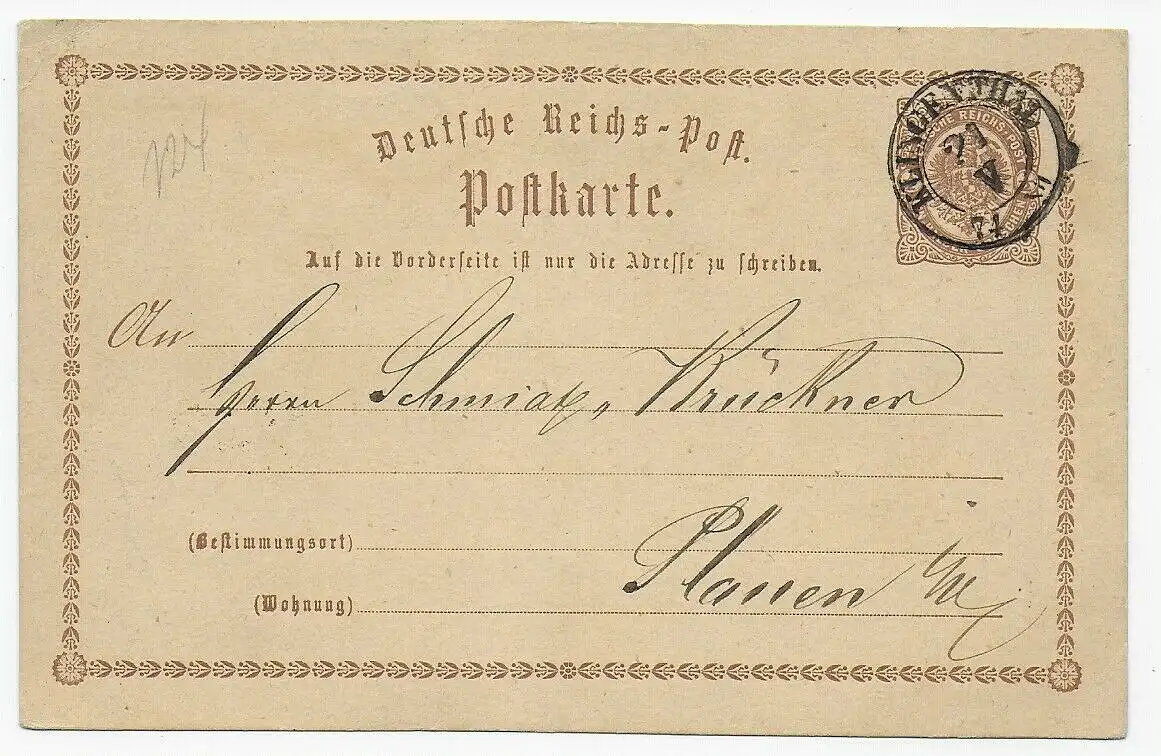 Deutsche Reichs-Post.
Postkarte.
Auf die Vorderseite ist nur die Adresse zu schreiben.
KLINGENTHAL
An
Herrn Schmidt, Brückner
(Bestimmungsort) Plauen
(Wohnung)